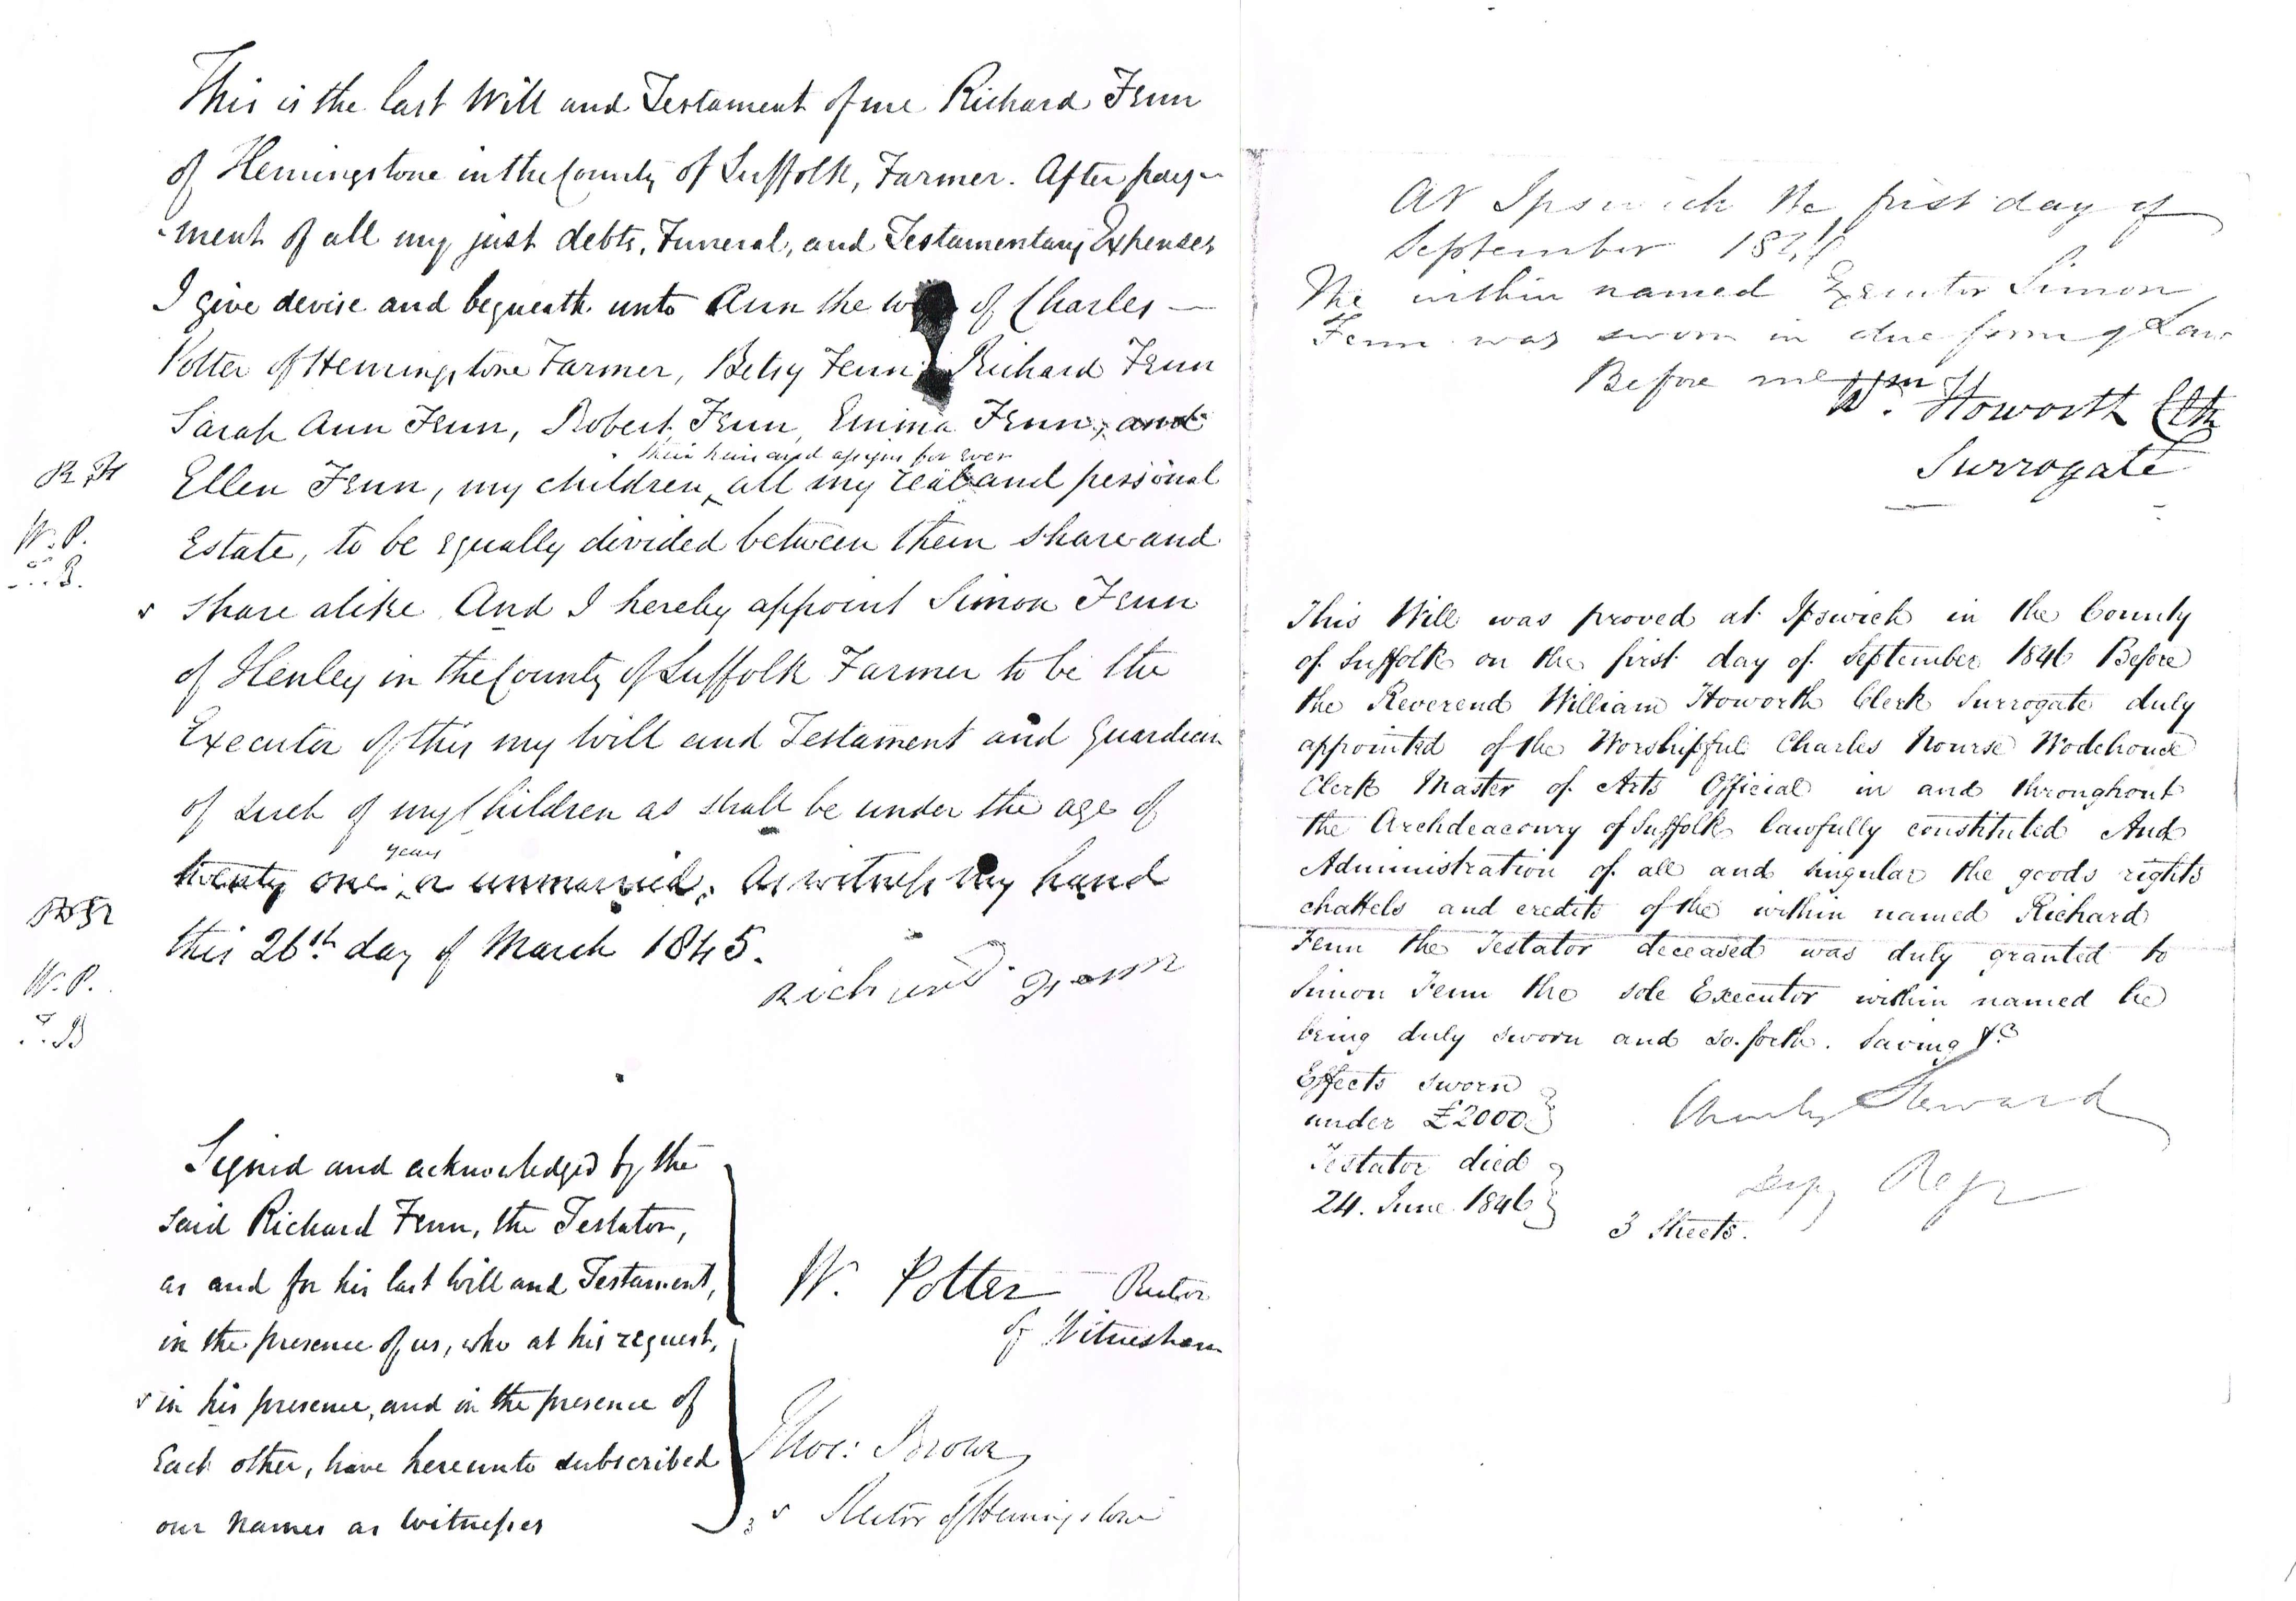 This is the last Will and Testament of me Richard Fenn
of Hemingstone in the County of Suffolk, Farmer. After pay-
-ment of all my just debts, Funeral, and Testamentary Expenses
I give devise and bequeath unto Ann the of Charles —
Potter of Hemingstone Farmer, Betsy Fenn, Richard Fenn
Sarah Ann Fenn, Robert Fenn, Emma Fenn, and
their heirs and assigns for ever
R F
Ellen Fenn, my children, ‸ all my real and personal
W. P.
T. B.
Estate, to be equally divided between them share and
share alike. And I hereby appoint Simon Fenn
of Henley in the County of Suffolk Farmer to be the
Executor of this my Will and Testament and Guardian
of such of my Children as shall be under the age of
years
twenty one ‸ or unmarried. As witness my hand
W. P.
T. B
this 26th day of March 1845.
Richard Fenn
Signed and acknowledged by the
said Richard Fenn, the Testator,
as and for his last Will and Testament,
in the presence of us, who at his request,
in his presence, and in the presence of
Each other, have hereunto subscribed
our names as Witnesses
W. Potter Rector
of Witnesham
Thos: Brown
Rector of Hemingstone
At Ipswich the first day of
September
The within named Executor Simon
Fenn was sworn in due form of Law
Before me
W. Howorth Clk
Surrogate
This Will was proved at Ipswich in the County
of Suffolk on the first day of September 1846 Before
the Reverend William Howorth Clerk Surrogate duly
appointed of the Worshipful Charles Nourse Wodehouse
Clerk Master of Arts Official in and throughout
the Archdeaconry of Suffolk lawfully constituted And
Administration of all and singular the goods rights
chattels and credits of the within named Richard
Fenn the Testator deceased was duly granted to
Simon Fenn the sole Executor within named he
being duly sworn and so forth. Saving &c
Effects sworn
under £2000
Charles Steward
Testator died
24. June 1846
Depy Regr
3 Sheets.